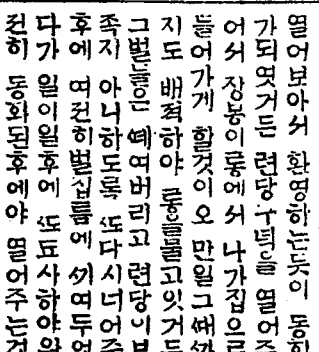 열어보아서 환영하는듯이 동화
가되엿거든 련당구덕을 열어주
어서 장봉이 롱에서 나가집으로
들어가게 할것이오 만일그때까
지도 배쳑하야 롱을물고잇거든
그벌들은 떼여버리고 련당이부
족지 아니하도록 ᄯᅩ다시너어주
후에 여젼히벌십틈에 ᄭᅵ여두엇
다가 일이일후에 ᄯᅩ됴사하야완
젼히 동화된후에야 열어주는것